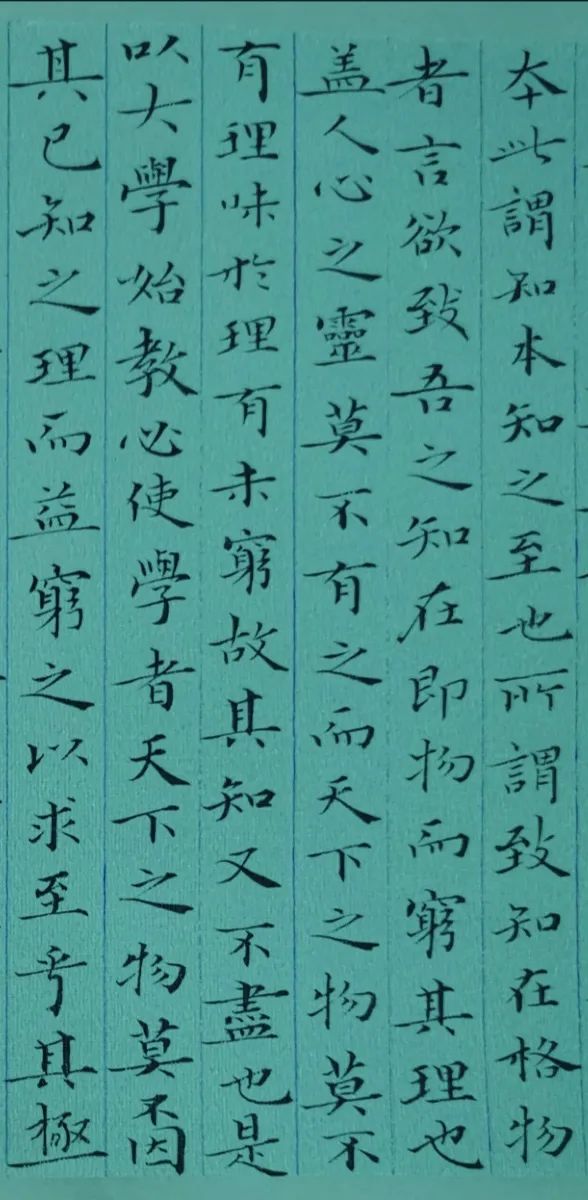 本此謂知本知之至也所謂致知在格物
者言欲致吾之知在即物而窮其理也
盖人心之靈莫不有之而天下之物莫不
有理味於理有未窮故其知又不盡也是
以大學始教必使學者天下之物莫不因
其已知之理而益窮之以求至乎其極